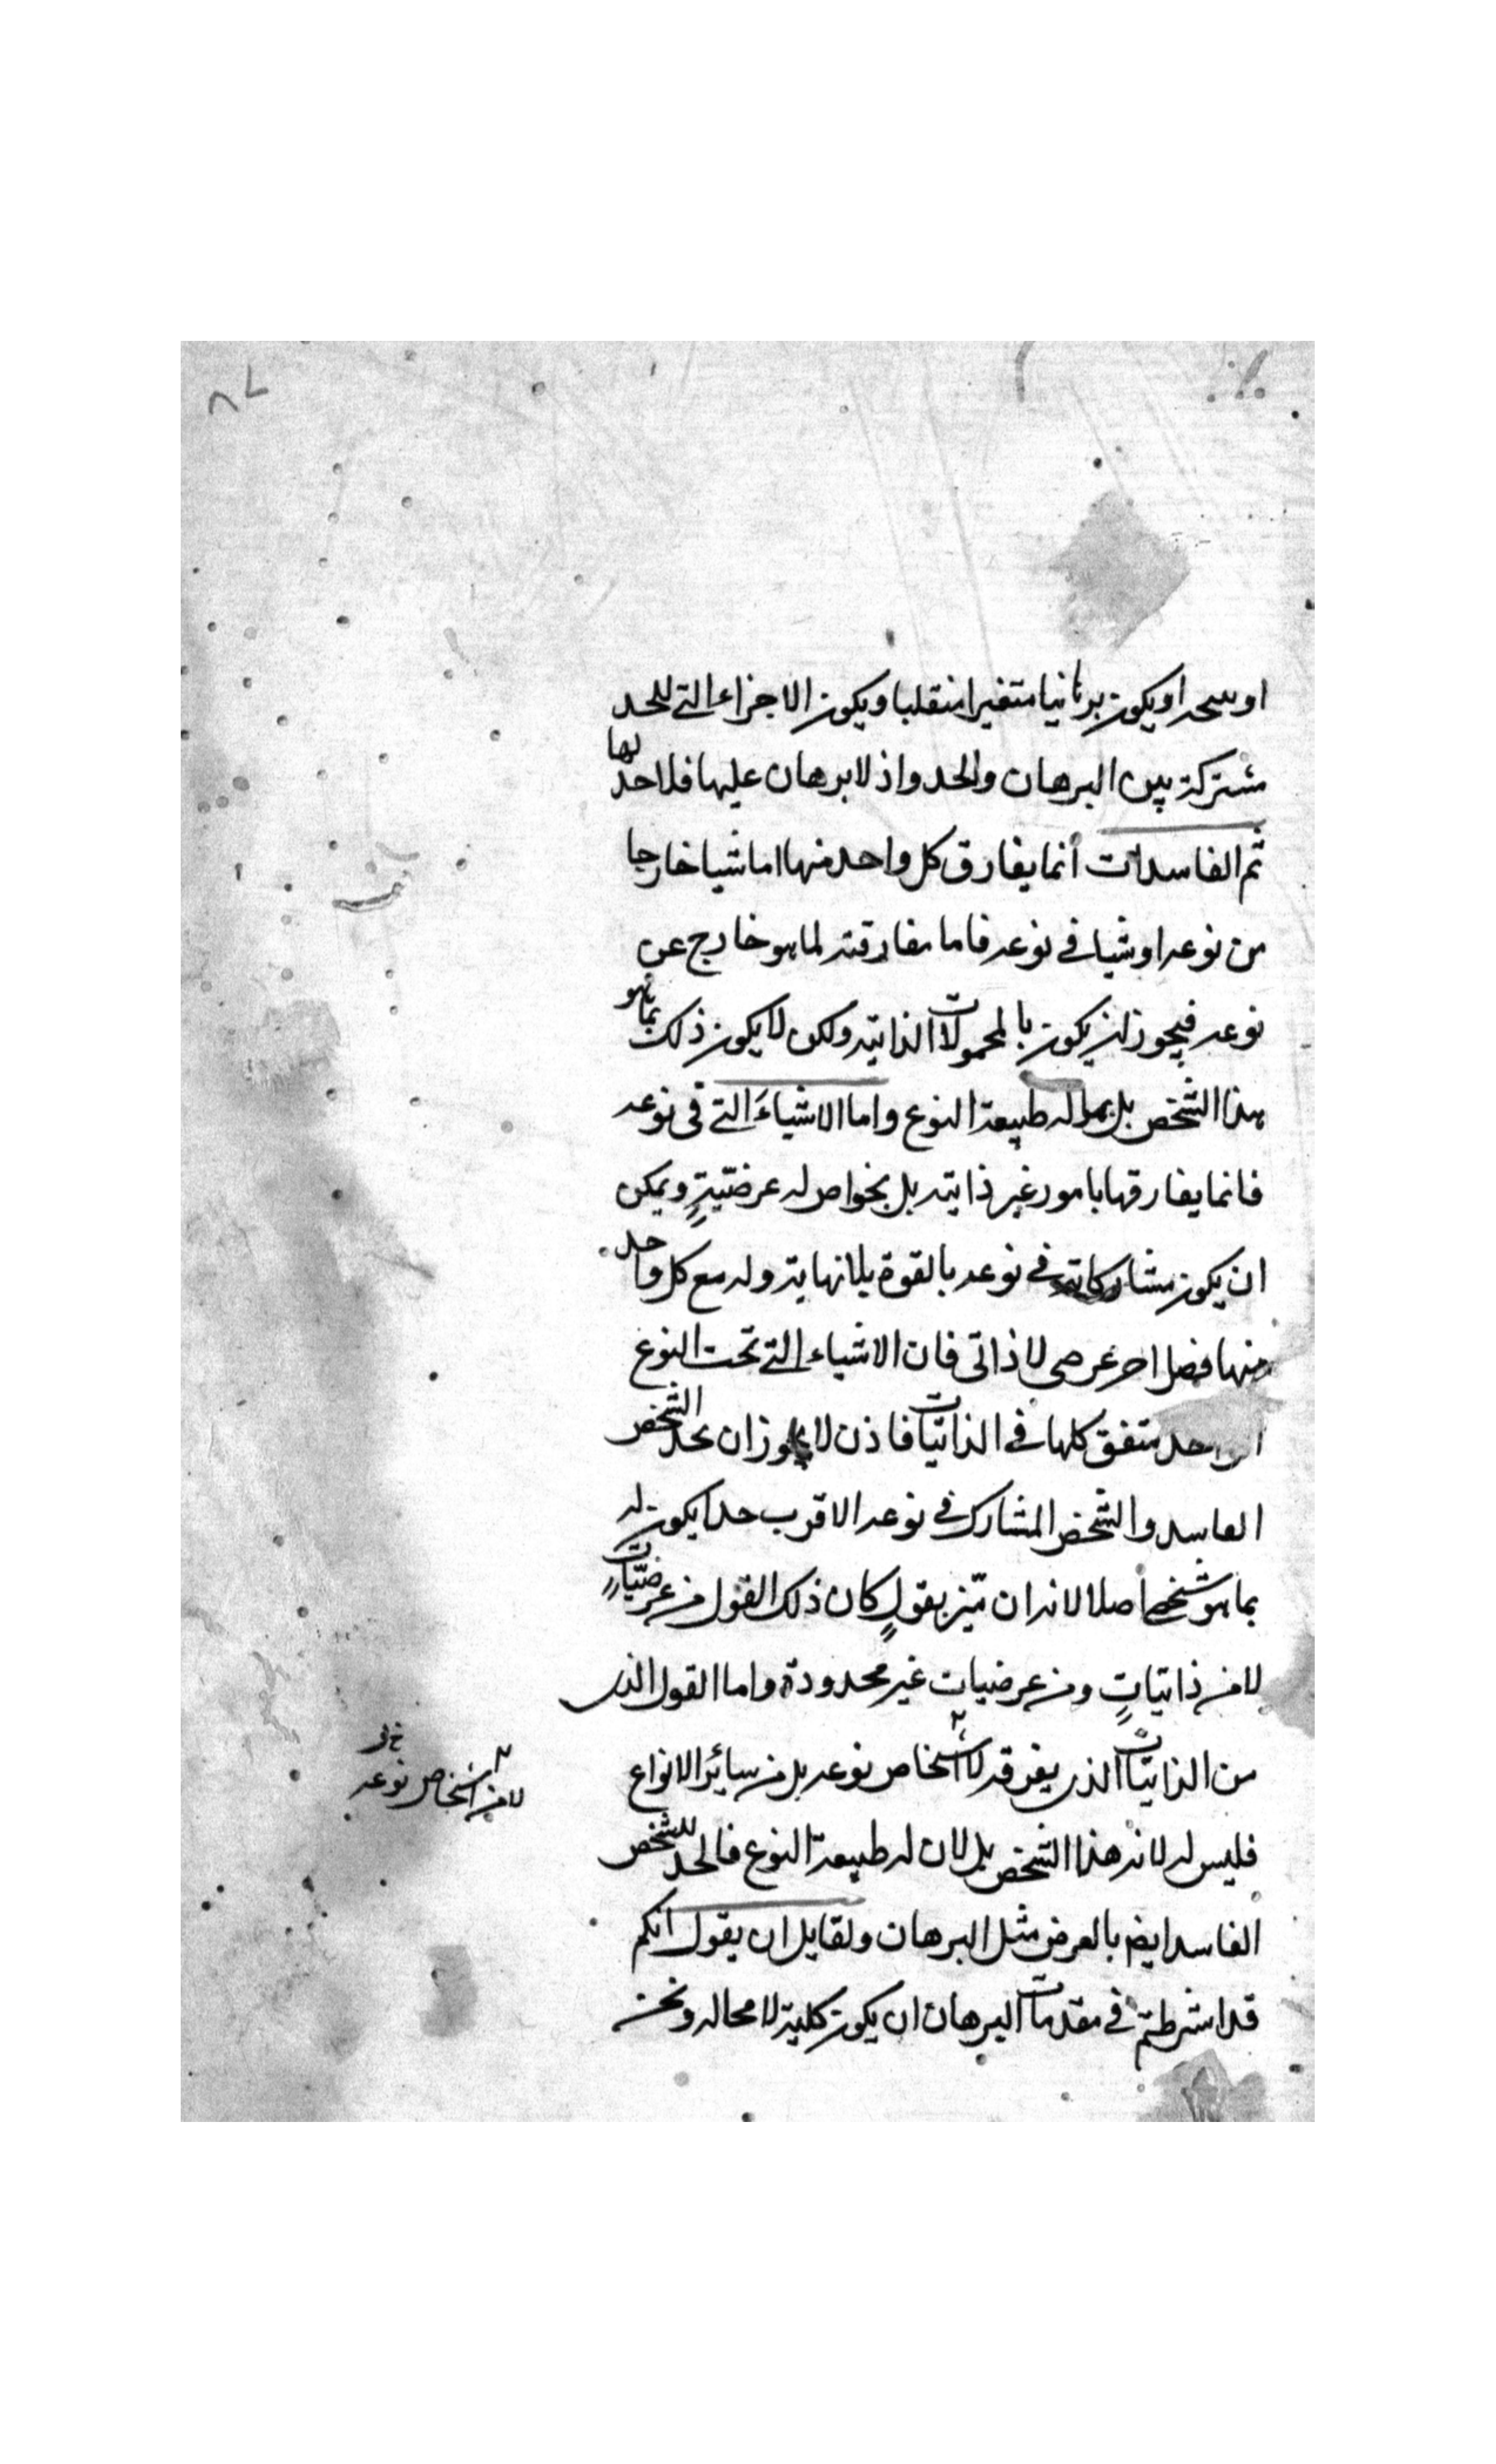 او يكون برهانيا متغيرا منقلبا ويكون الاجزاء التي للحد
مشتركة بين البرهان والحد واذ لا برهان عليها فلا حد لها
ثم الفاسدات انما يفارق كل واحد منها اما شيا خارجا
من نوعه او شيا في نوعه فاما مفارقته لما هو خارج عن
نوعه فيجوز ان يكون بالمحمولات الذاتيه ولكن لا يكون ذلك بما هو
هذا الشخص بل بما له طبيعة النوع واما الاشياءَ التي في نوعه
فانما يفارقها بامور غير ذاتيه بل بخواص له عرضيّةٍ ويمكن
ان يكون مشاركاته في نوعه بالقوة بلا نهاية وله مع كل واحد
منها فصل اخر عرضى لا ذاتى فان الاشياء التي تحت النوع
الواحد متفق كلها في الذاتيّات فاذن لا يجوز ان يحد الشخص
الفاسد والشخص المشارك في نوعه الاقرب حدا يكون له
بما هو شخص اصلا لانه ان ميّز بقولٍ كان ذلك القول من عرضيّاتٍ
لا من ذاتياتٍ ومن عرضيات غير محدودة واما القول الذى
من الذاتيّات الذى يفرقه لا اشخاص نوعه بل من سائر الانواع
لا من اشخاص نوعه
فليس له لانه هذا الشخص بل لان له طبيعة النوع فالحد للشخص
الفاسد ايضا بالعرض مثل البرهان ولقايل ان يقول انكم
قد اشرطتم في مقدمات البرهان ان يكون كلية لا محاله ونحن